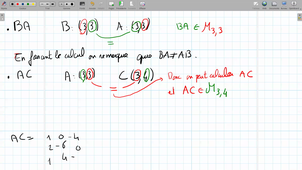 • BA B (3,3) A (3,3) BA ∈ M3,3
=
En faisant le calcul on remarque que BA≠AB.
• AC A (3,3) C (3,4) Donc on peut calculer AC
= et AC ∈ M3,4
AC = 1 0 -4
2 -6 0
1 4 -